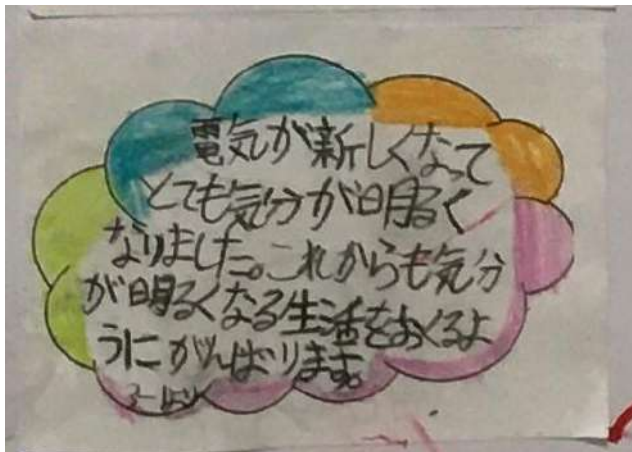 電気が新しくなって
とても気分が明るく
なりました。これからも気分
が明るくなる生活をおくるよ
うにがんばります。